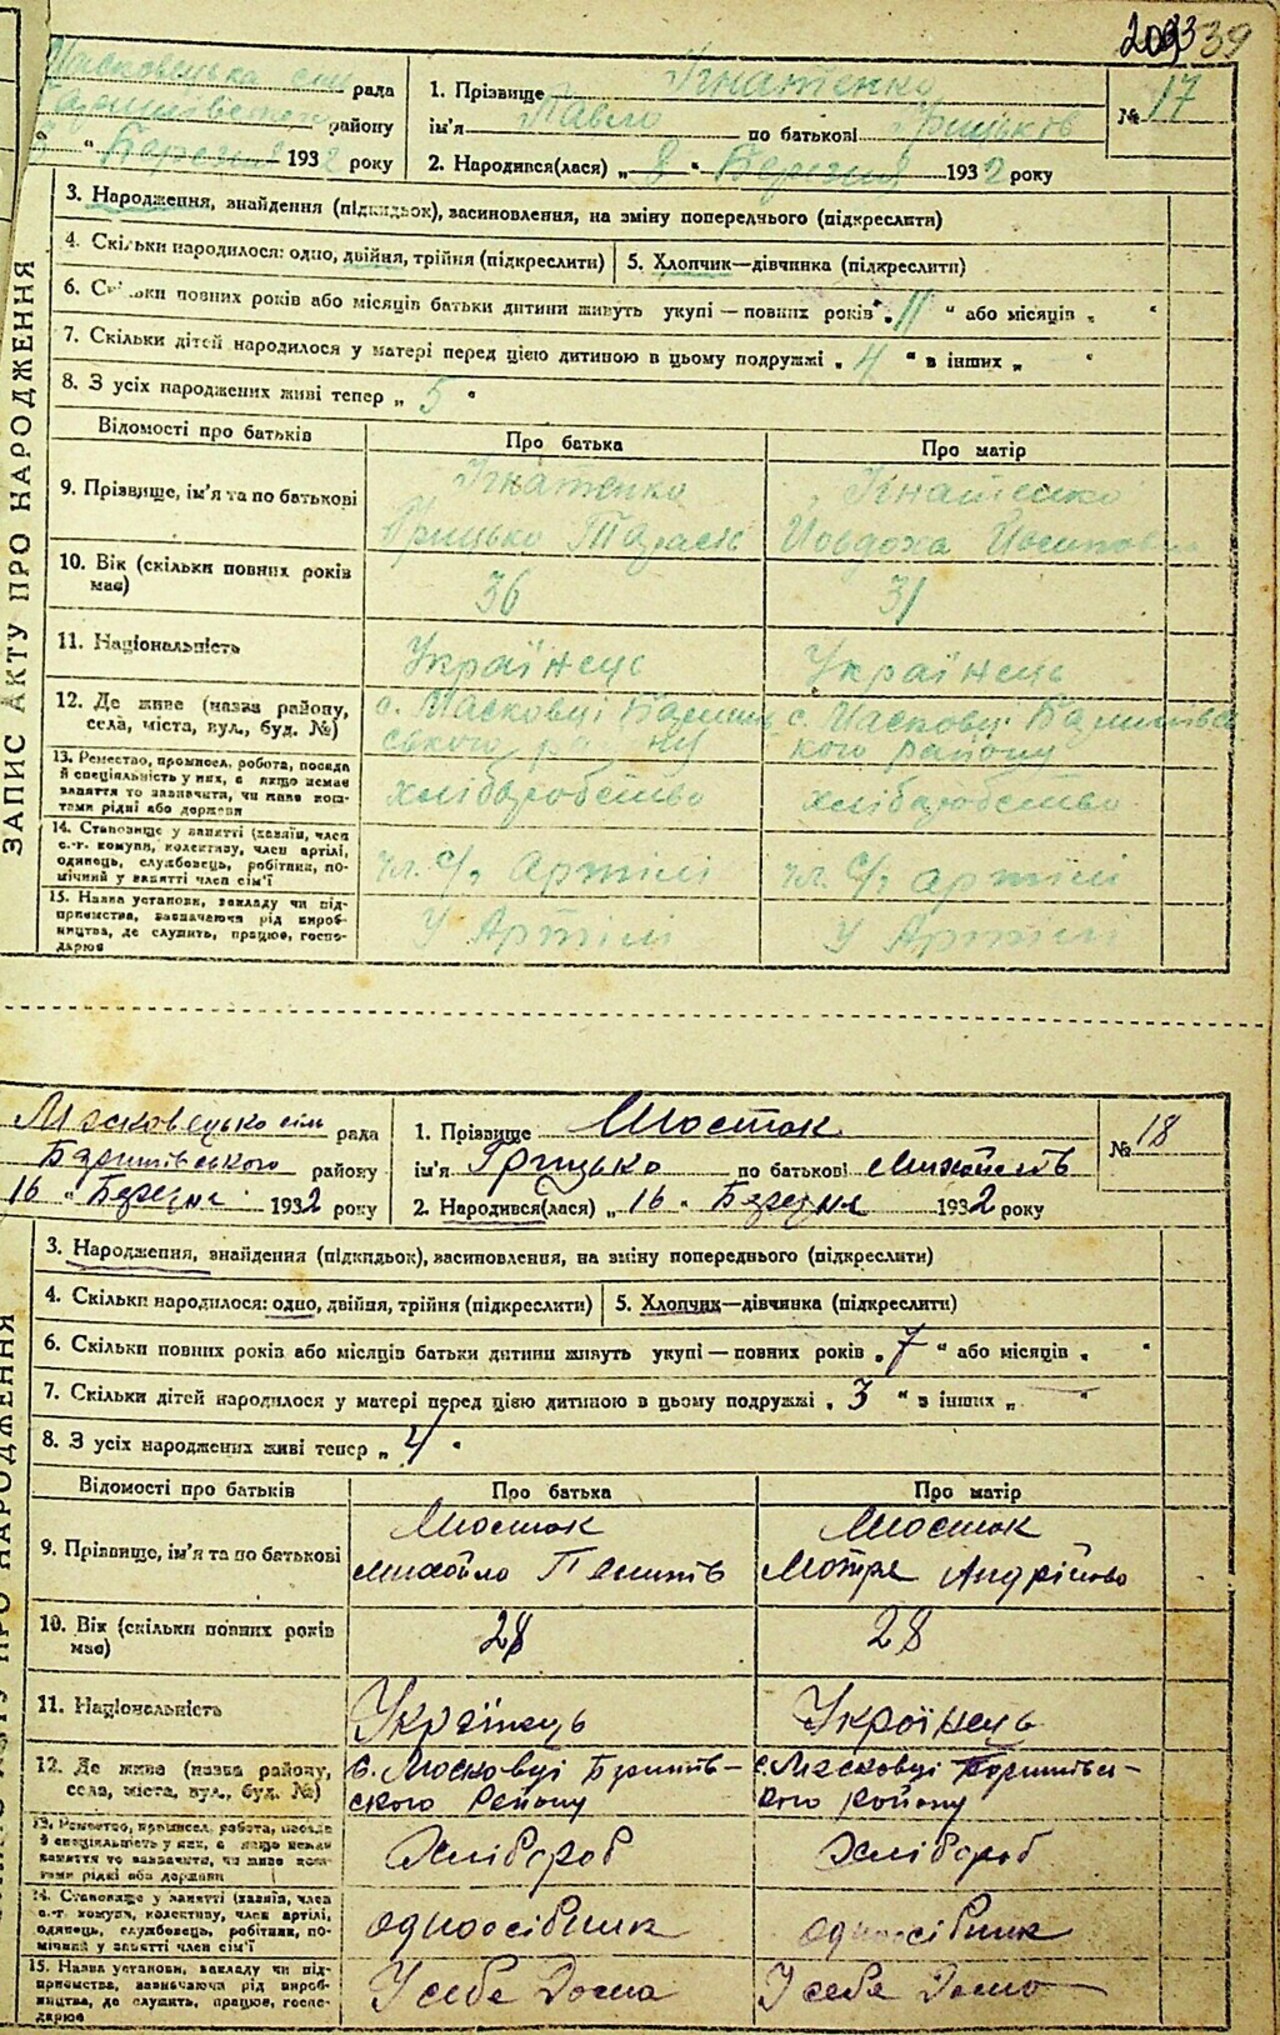 39
Масковецька сіл рада
району
" Березня 1932 року
1. Прізвище Ігнатенко
ім'я Павло по батькові Грицьков
№ 17
2. Народився(лася) „ 8 " Березня 1932 року
ЗАПИС АКТУ ПРО НАРОДЖЕННЯ
3. Народження, знайдення (підкидьок), засиновлення, на зміну попереднього (підкреслити)
4. Скільки народилося: одно, двійня, трійня (підкреслити)
5. Хлопчик—дівчинка (підкреслити)
6. Скільки повних років або місяців батьки дитини живуть укупі — повних років „ 11 " або місяців „ "
7. Скільки дітей народилося у матері перед цією дитиною в цьому подружжі „ 4 " в інших „ "
8. З усіх народжених живі тепер „ 5 "
Відомості про батьків
Про батька
Про матір
9. Прізвище, ім'я та по батькові
Ігнатенко
Грицько Тарасів
Ігнатенко
Йовдоха Йосипов
10. Вік (скільки повних років
має)
36
31
11. Національність
Українець
Українець
12. Де живе (назва району,
села, міста, вул., буд. №)
с. Масковці Баришів
ського району
с. Масковці Баришівсь
кого району
13. Ремество, промисел, робота, посада
й спеціяльність у них, а якщо немає
заняття то зазначити, чи живе кош-
тами рідні або держави
хліборобство
хліборобство
14. Становище у занятті (хазяїн, член
с.-г. комуни, колективу, член артілі,
одинець, службовець, робітник, по-
мічний у занятті член сім'ї
чл. с/г Артілі
чл. с/г артілі
15. Назва установи, закладу чи під-
приємства, зазначаючи рід вироб-
ництва, де служить, працює, госпо-
дарює
У Артілі
У Артілі
Масковецько сіль рада
Баришівського району
16 " Березня 1932 року
1. Прізвище Шосток
ім'я Грицько по батькові Михайлів
№ 18
2. Народився(лася) „ 16 " Березня 1932 року
ЗАПИС АКТУ ПРО НАРОДЖЕННЯ
3. Народження, знайдення (підкидьок), засиновлення, на зміну попереднього (підкреслити)
4. Скільки народилося: одно, двійня, трійня (підкреслити)
5. Хлопчик—дівчинка (підкреслити)
6. Скільки повних років або місяців батьки дитини живуть укупі — повних років „ 7 " або місяців „ "
7. Скільки дітей народилося у матері перед цією дитиною в цьому подружжі „ 3 " в інших „ — "
8. З усіх народжених живі тепер „ 4 "
Відомості про батьків
Про батька
Про матір
9. Прізвище, ім'я та по батькові
Шосток
Михайло
Шосток
Мотря Андрійово
10. Вік (скільки повних років
має)
28
28
11. Національність
Українець
Українець
12. Де живе (назва району,
села, міста, вул., буд. №)
с. Масковці Баришів-
ского Району
с. Масковці Баришівсь-
кого району
13. Ремество, промисел, робота, посада
й спеціяльність у них, а якщо немає
заняття то зазначити, чи живе кош-
тами рідні або держави
Хлібороб
Хлібороб
14. Становище у занятті (хазяїн, член
с.-г. комуни, колективу, член артілі,
одинець, службовець, робітник, по-
мічний у занятті член сім'ї
одноосібник
одноосібник
15. Назва установи, закладу чи під-
приємства, зазначаючи рід вироб-
ництва, де служить, працює, госпо-
дарює
У себе Дома
У себе Домо